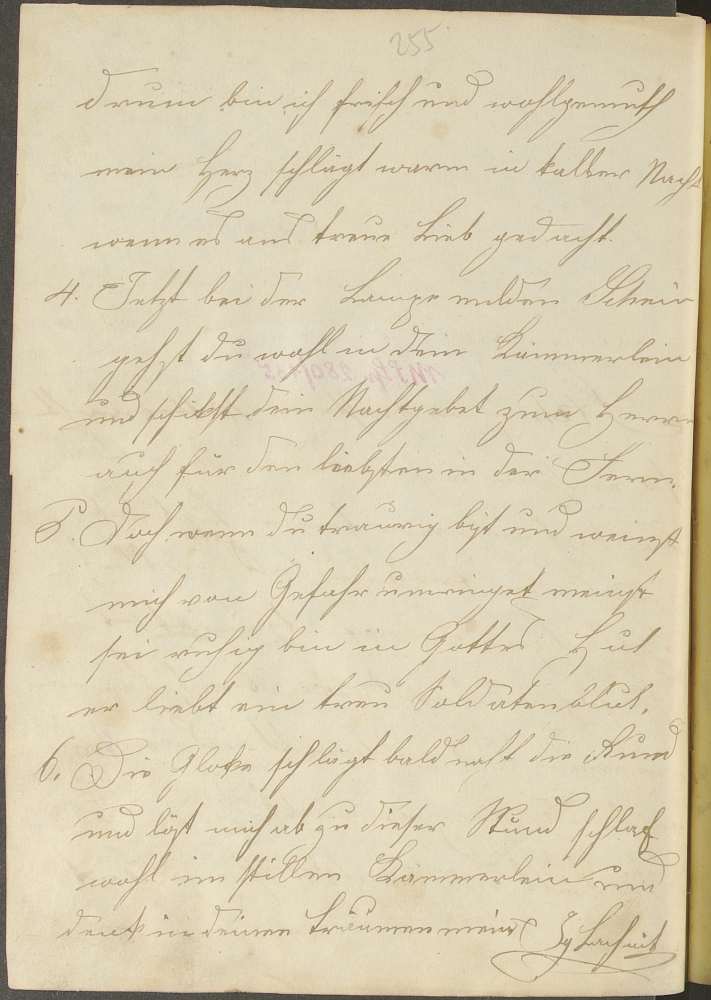 255
drum bin ich frisch und wohlgemuth
mein Herz schlägt warm in kalter Nacht
wenn es ans treue Lieb gedacht.
4. Jetzt bei der Lampe milden Schein
gehst du wohl in dein Kämmerlein
und schickst dein Nachtgebet zum Herrn
auch für den liebsten in der Fern.
5. Doch wenn du traurig bist und weinst
mich von Gefahr umringet meinst
sei ruhig bin in Gottes Hut
er liebt ein treu Soldatenblut.
6. Die Gloke schlägt bald naht die Rund
und löst mich ab zu dieser Stund schlaf
wohl im stillen Kämmerlein und
denk in deinen träumen mein